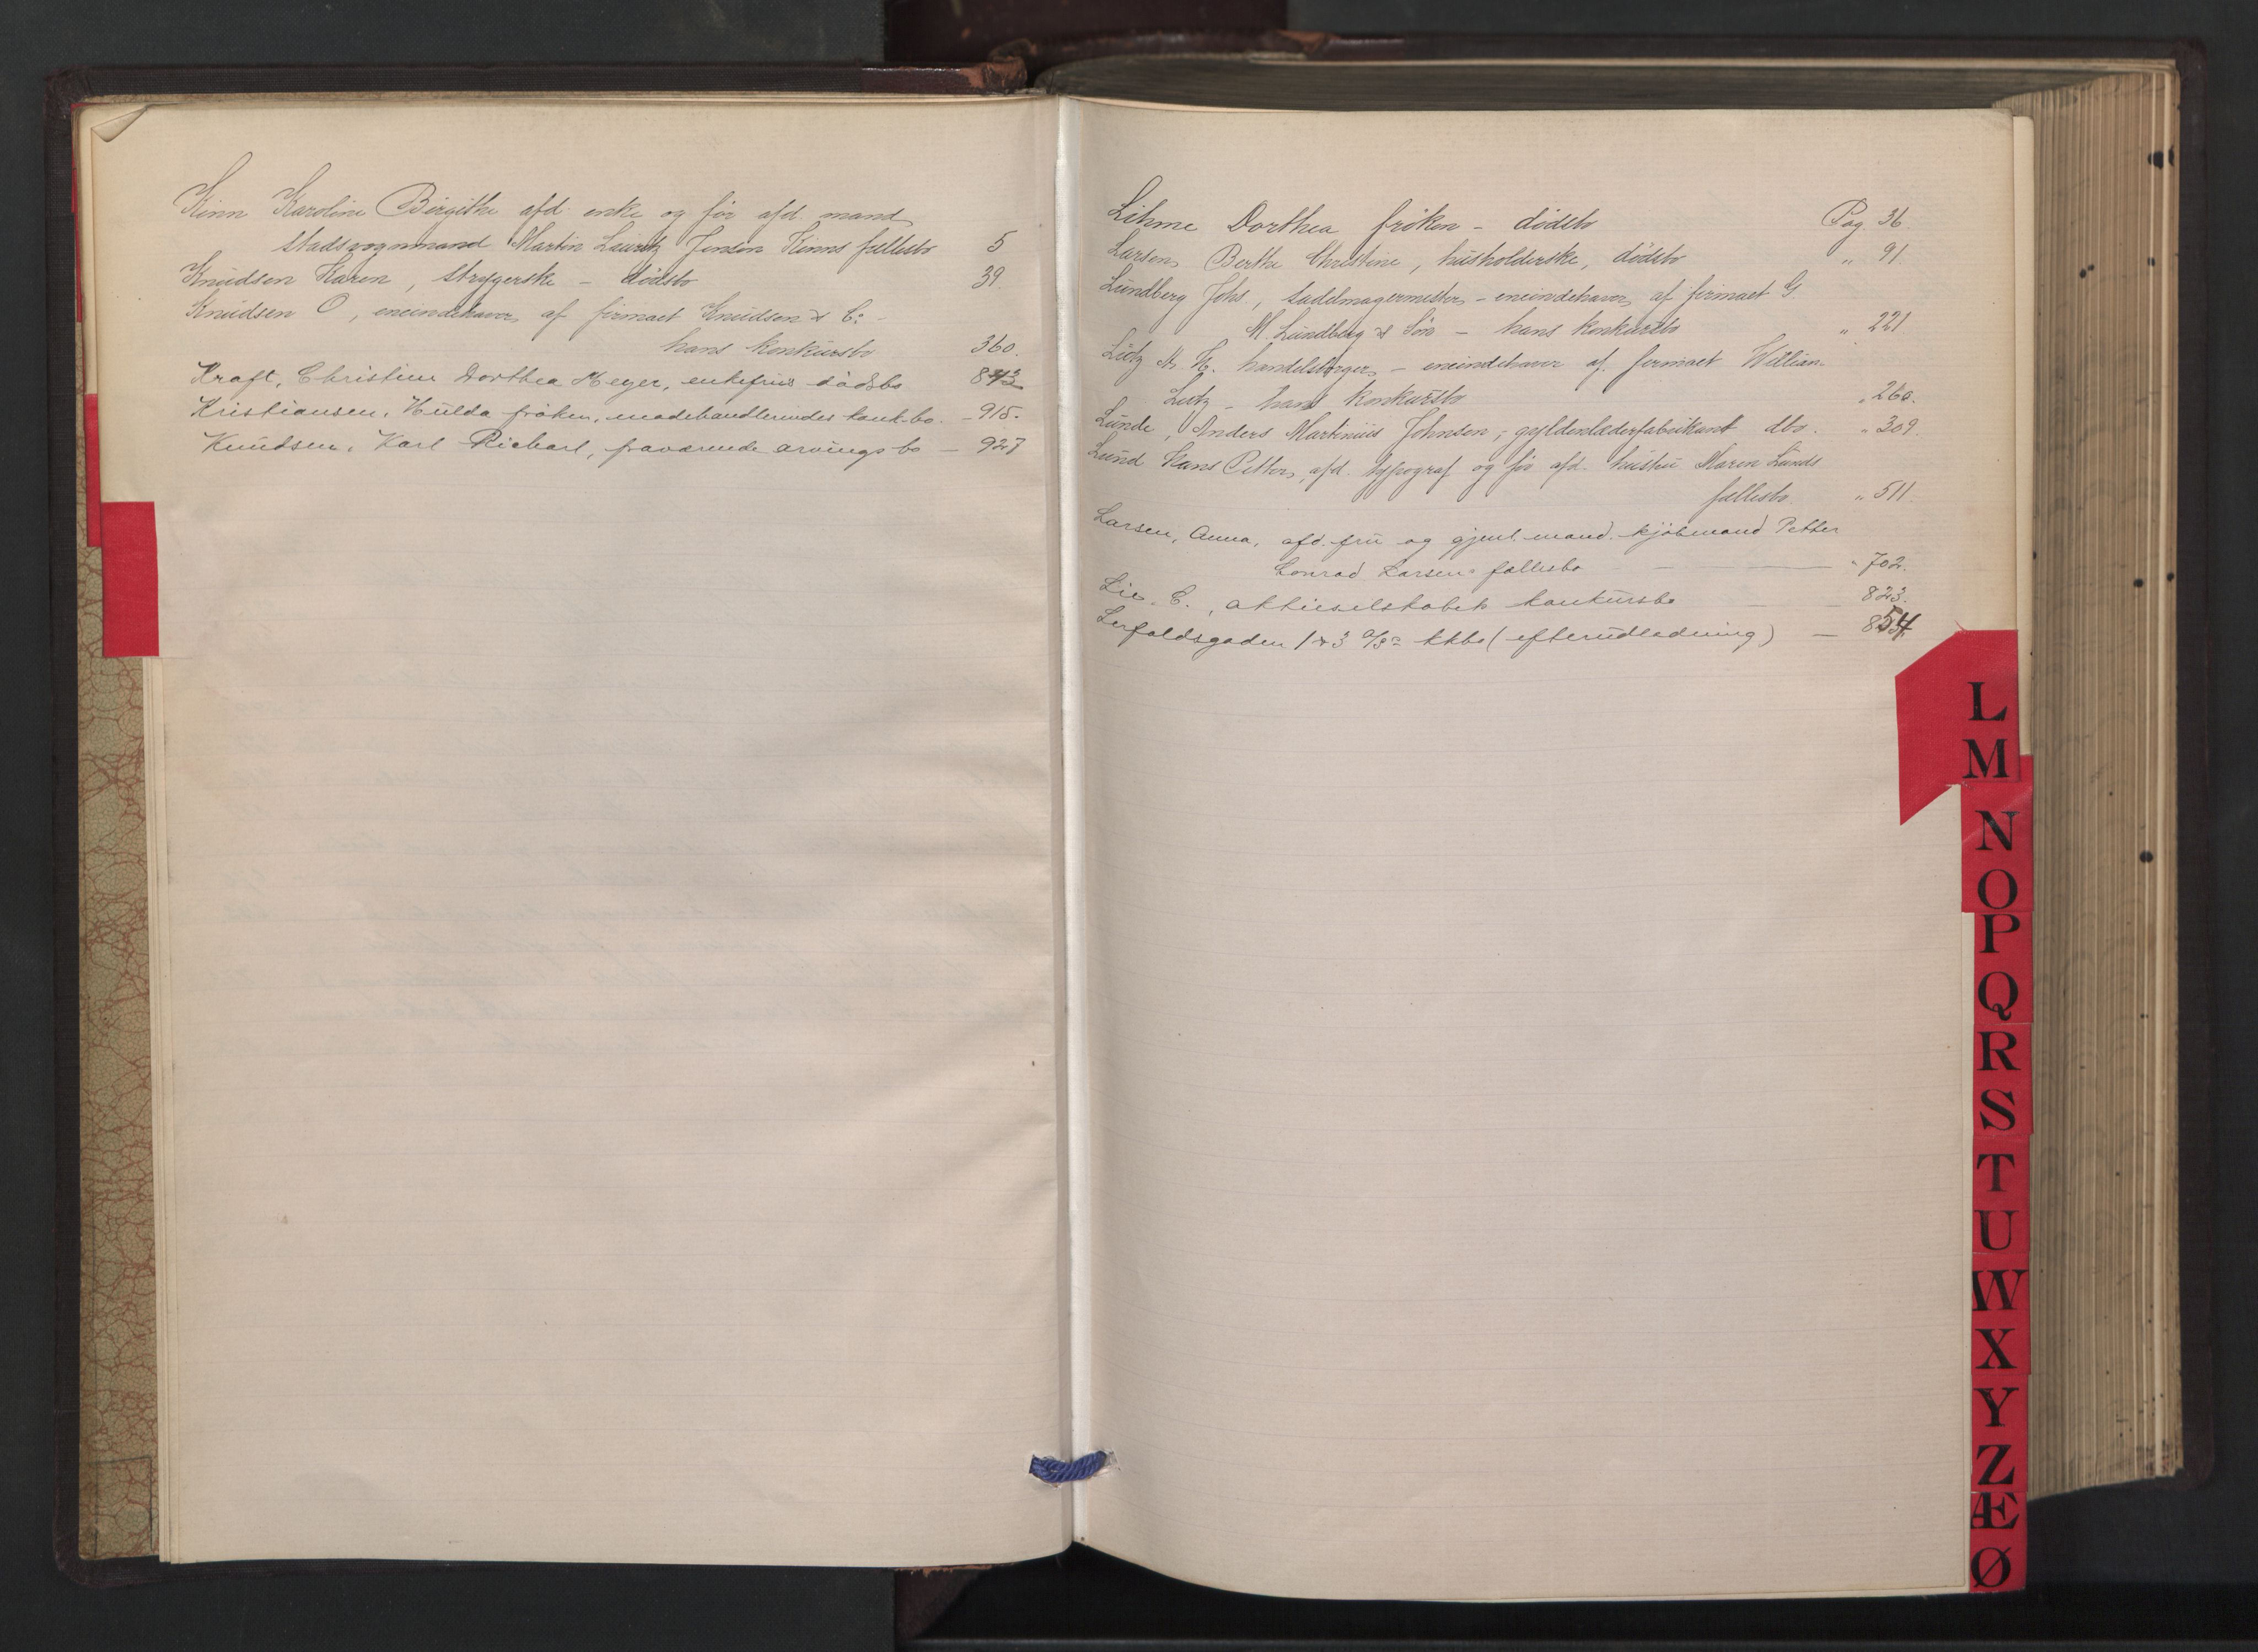 Kinn Karoline Birgithe afd. enke og før afd. mand
stadsvognmand Martin Lauritz Jensen Kinns fællesbo 5
Knudsen Karen, strygerske - dødsbo 39.
Knudsen O, eneindehaver af firmaet Knudsen & Co. -
hans konkursbo 360.
Kraft, Christine Dorthea Meyer, enkefrus dødsbo 843
Kristiansen, Hulda frøken, modehandlerindes konk.bo. - 915.
Knudsen, Karl Richart, fraværende arvings bo - 927
Lihme Dorthea frøken - dødsbo Pag 36
Larsen Berthe Christine, husholderske, dødsbo " 91.
Lundberg Johs., sadelmagermester - eneindehaver af firmaet G.
M. Lundberg & Søn - hans konkursbo " 221
Lutz handelsborger - eneindehaver af firmaet William
Lutz - hans konkursbo " 260.
Lunde, Anders Martinius Johnsen, gyldenlæderfabrikant dbo. " 309.
Lund Hans Petter, afd. typograf og før afd. hustru Maren Lunds
fællesbo " 511.
Larsen, Anna, afd. fru og gjenl. mand kjøbmand Petter
Conrad Larsens fællesbo — " 702.
Lie, C., aktieselskabets konkursbo — 823.
Leryfaldsgaden 1 & 3 A/S= kkbo (efterudlodning) — 854
L
M
N
O
P
Q
R
S
T
U
W
X
Y
Z
Æ
Ø